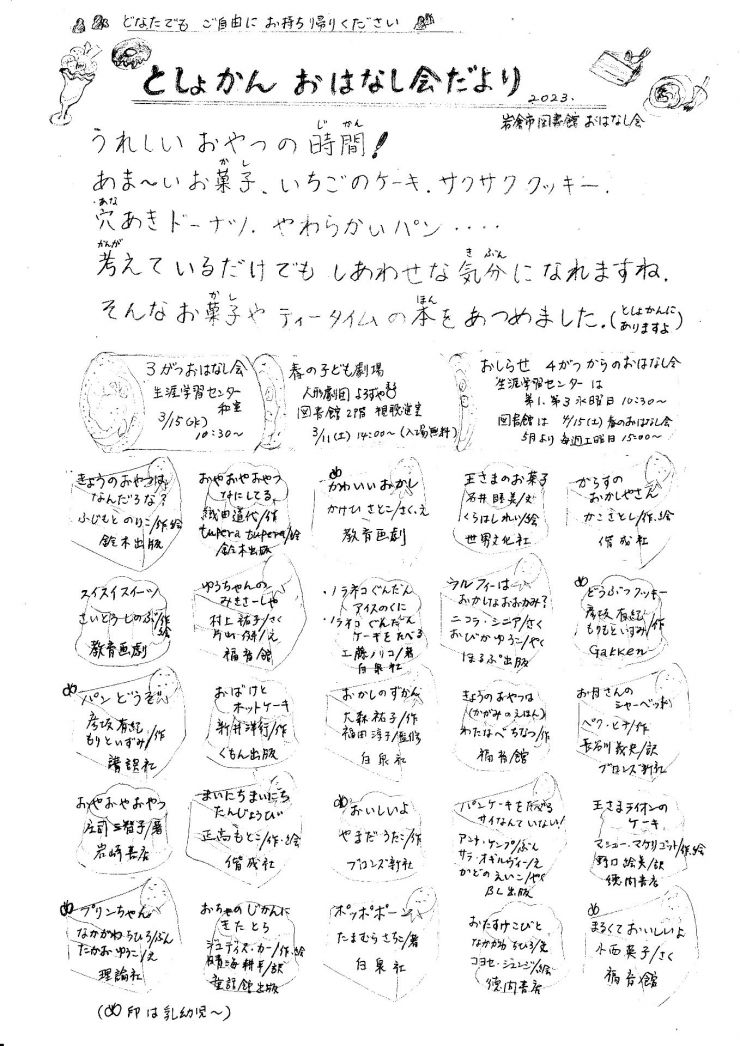 どなたでも ご自由に お持ち帰りください
としょかん おはなし会だより
2023.
岩倉市図書館 おはなし会
うれしい おやつの 時間!
じ かん
あま〜いお菓子、いちごのケーキ、サクサククッキー、
か し
穴あきドーナツ、やわらかいパン・・・・
あな
考えているだけでも しあわせな気分になれますね。
かんが
き ぶん
そんなお菓子や ティータイムの本をあつめました。(としょかんにありますよ)
か し
ほん
3がつおはなし会
生涯学習センター
和室
3/15(水)
10:30〜
春の子ども劇場
人形劇団よろずや
図書館2階 視聴覚室
3/11(土) 14:00〜(入場無料)
おしらせ 4がつからのおはなし会
生涯学習センターは
第1、第3水曜日 10:30〜
図書館は 4/15(土)春のおはなし会
5月より毎週土曜日 15:00〜
きょうのおやつは
なんだろな?
ふじもと のりこ/作・絵
鈴木出版
おやおやおやつ
なにしてる
織田道代/作
tupera tupera/絵
鈴木出版
め かわいいおかし
かけひ さとこ/さく、え
教育画劇
王さまのお菓子
石井睦美/文
くらはしれい/絵
世界文化社
からすの
おかしやさん
かこさとし/作・絵
偕成社
スイスイスイーツ
さいとうしのぶ/作絵
教育画劇
ゆうちゃんの
みきさーしゃ
村上祐子/さく
片山健/え
福音館
・ノラネコぐんだん
アイスのくに
・ノラネコぐんだん
ケーキをたべる
工藤ノリコ/著
白泉社
ラルフィーは
おかしなおおかみ?
ニコラ・シニア/さく
おびか ゆうこ/やく
ほるぷ出版
め どうぶつクッキー
彦坂有紀
もりといずみ/作
Gakken
め パンどうぞ
彦坂有紀
もりといずみ/作
講談社
おばけと
ホットケーキ
新井洋行/作
くもん出版
おかしのずかん
大森裕子/作
福田淳子/監修
白泉社
きょうのおやつは
(かがみのえほん)
わたなべちなつ/作
福音館
お月さんの
シャーベット
ペク・ヒナ/作
長谷川義史/訳
ブロンズ新社
おやおやおやつ
庄司三智子/著
岩崎書店
まいにちまいにち
たんじょうび
正高もとこ/作・絵
偕成社
め おいしいよ
やまだうたこ/作
ブロンズ新社
パンケーキをたべる
サイなんていない!
アンナ・ケンプ/ぶん
サラ・オギルヴィー/え
かどのえいこ/やく
BL出版
王さまライオンの
ケーキ
マシュー・マケリゴット/作・絵
野口絵美/訳
徳間書店
め プリンちゃん
なかがわちひろ/ぶん
たかおゆうこ/え
理論社
おちゃのじかんに
きた とら
ジュディス・カー/作・絵
晴海耕平/訳
童話館出版
ポッポポーン
たまむらさちこ/著
白泉社
おたすけこびと
なかがわちひろ/文
コヨセ・ジュンジ/絵
徳間書店
め まるくておいしいよ
小西英子/さく
福音館
(め印は乳幼児〜)